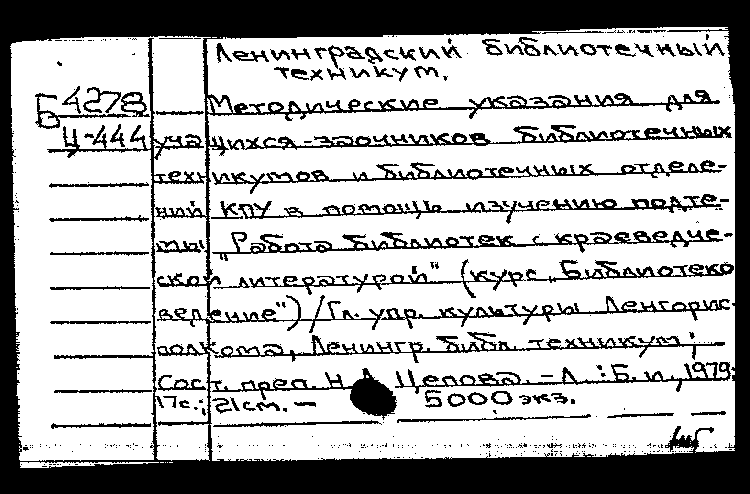 Ленинградский библиотечный
техникум.
Б 4278 Методические указания для
Ц-444 учащихся-заочников библиотечных
техникумов и библиотечных отделе-
ний КПУ в помощь изучению подте-
мы „Работа библиотек с краеведче-
ской литературой" (курс „Библиотеко
ведение")/Гл. упр. культуры Ленгорис-
полкома, Ленингр. библ. техникум;
Сост. преп. Н. А. Цепова. - Л.: Б. и., 1979:
17с.; 21см. — 5000 экз.